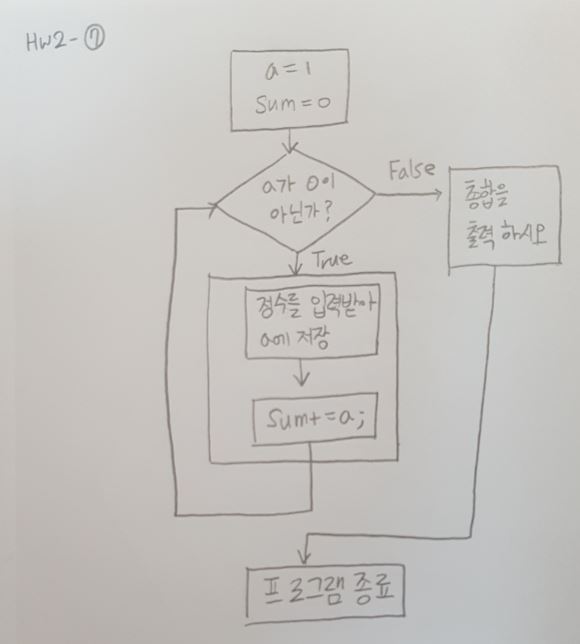 HW2-⑦
a=1
Sum=0
a가 0이
아닌가?
False
총합을
출력 하시오
True
정수를 입력받아
a에 저장
Sum+=a;
프로그램 종료